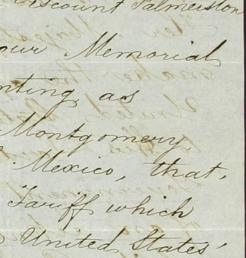 Viscount Palmerston
our Memorial
nting as
Montgomery
Mexico, that,
Tariff which
United States'